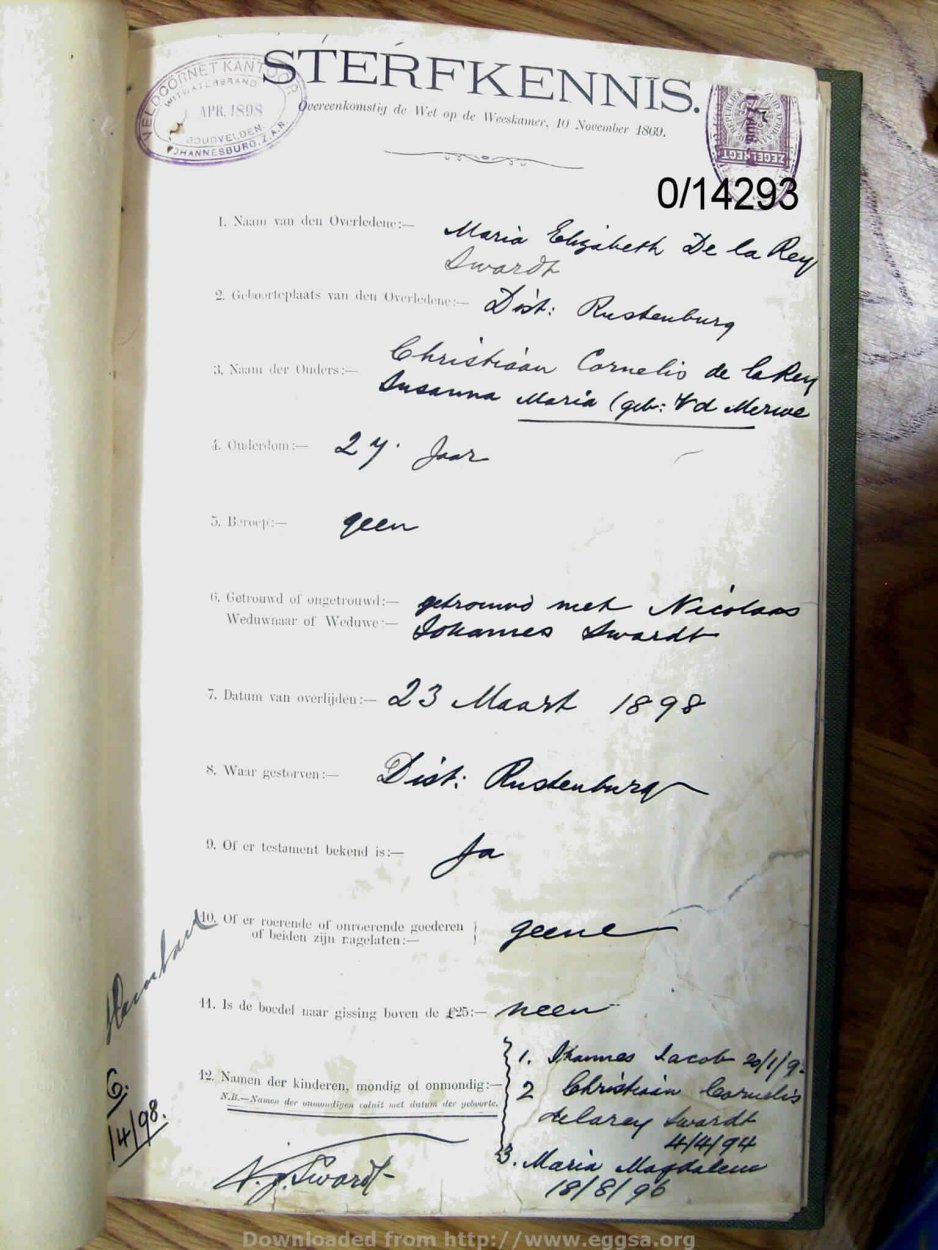 STERFKENNIS.
Overeenkomstig de Wet op de Weeskamer, 10 November 1869.
VELDCORNET KANTOOR
WITWATERSRAND
APR. 1898
GOUDVELDEN.
JOHANNESBURG, Z.A.R.
ZEGELREGT
0/14293
1. Naam van den Overledene:— Maria Elizabeth De la Rey
Swardt
2. Geboorteplaats van den Overledene:— Dist: Rustenburg
3. Naam der Ouders:— Christiaan Cornelis de la Rey
Susanna Maria (geb: Vd Merwe
4. Ouderdom:— 27. Jaar
5. Beroep:— geen
6. Getrouwd of ongetrouwd:— getrouwd met Nicolaas
Weduwnaar of Weduwe:— Johannes Swardt
7. Datum van overlijden:— 23 Maart 1898
8. Waar gestorven:— Dist: Rustenburg
9. Of er testament bekend is:— Ja
10. Of er roerende of onroerende goederen
of beiden zijn nagelaten:— geene
11. Is de boedel naar gissing boven de £25:— neen
12. Namen der kinderen, mondig of onmondig:—
N.B.—Namen der onmondigen voluit met datum der geboorte.
1. Johannes Jacob 20/1/9
2 Christiaan Cornelis
delarey Swardt
4/4/94
3. Maria Magdalena
18/8/96
N. J. Swardt
6.
/4/98.
Downloaded from http://www.eggsa.org